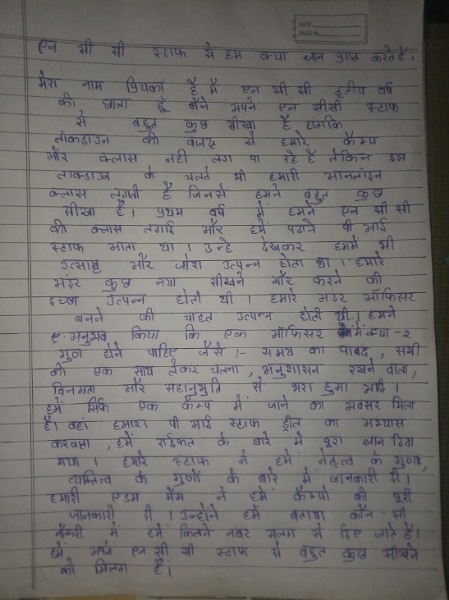 DATE
PAGE No.
एन सी सी स्टाफ से हम क्या ज्ञान प्राप्त करते है।
मेरा नाम प्रियंका है मै एन सी सी तृतीय वर्ष
की छात्रा हूं मैंने अपने एन सीसी स्टाफ
से बहुत कुछ सीखा है हालांकि
लॉकडाउन की वजह से हमारे कैम्प
और क्लास नही लग पा रहे है लेकिन इस
लाकडाउन के चलते भी हमारी आनलाइन
क्लास लगती है जिनसे हमने बहुत कुछ
सीखा है। प्रथम वर्ष में हमने एन सी सी
की क्लास लगाई और हमें पढाने पी आई
स्टाफ आता था। उन्हे देखकर हममें भी
उत्साह और जोश उत्पन्न होता था। हमारे
अंदर कुछ नया सीखने और करने की
इच्छा उत्पन्न होती थी। हमारे अंदर ऑफिसर
बनने की चाहत उत्पन्न होती थी। हमने
अनुभव किया कि एक ऑफिसर में क्या-२
गुण होने चाहिए जैसे :- समय का पाबंद, सभी
को एक साथ लेकर चलना, अनुशासन रखने वाला,
विनम्रता और सहानुभुति से भरा हुआ आदि।
हमें सिर्फ एक कैम्प में जाने का अवसर मिला
है। वहां हमारा पी आई स्टाफ ड्रील का अभ्यास
करवाया, हमें राईफल के बारे में पूरा ज्ञान दिया
गया। हमारे स्टाफ ने हमें नेतृत्व के गुण,
व्यक्तित्व के गुणों के बारे में जानकारी दी।
हमारी एडम मैम ने हमें कैम्पो की पूरी
जानकारी दी। उन्होने हमें बताया कौन सी
नौकरी में हमें कितने नंबर अलग से दिए जाते है।
हमें अपने एन सी सी स्टाफ से बहुत कुछ सीखने
को मिलता है।